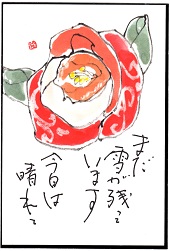 まだ
雪が残って
います
今日は
晴れて